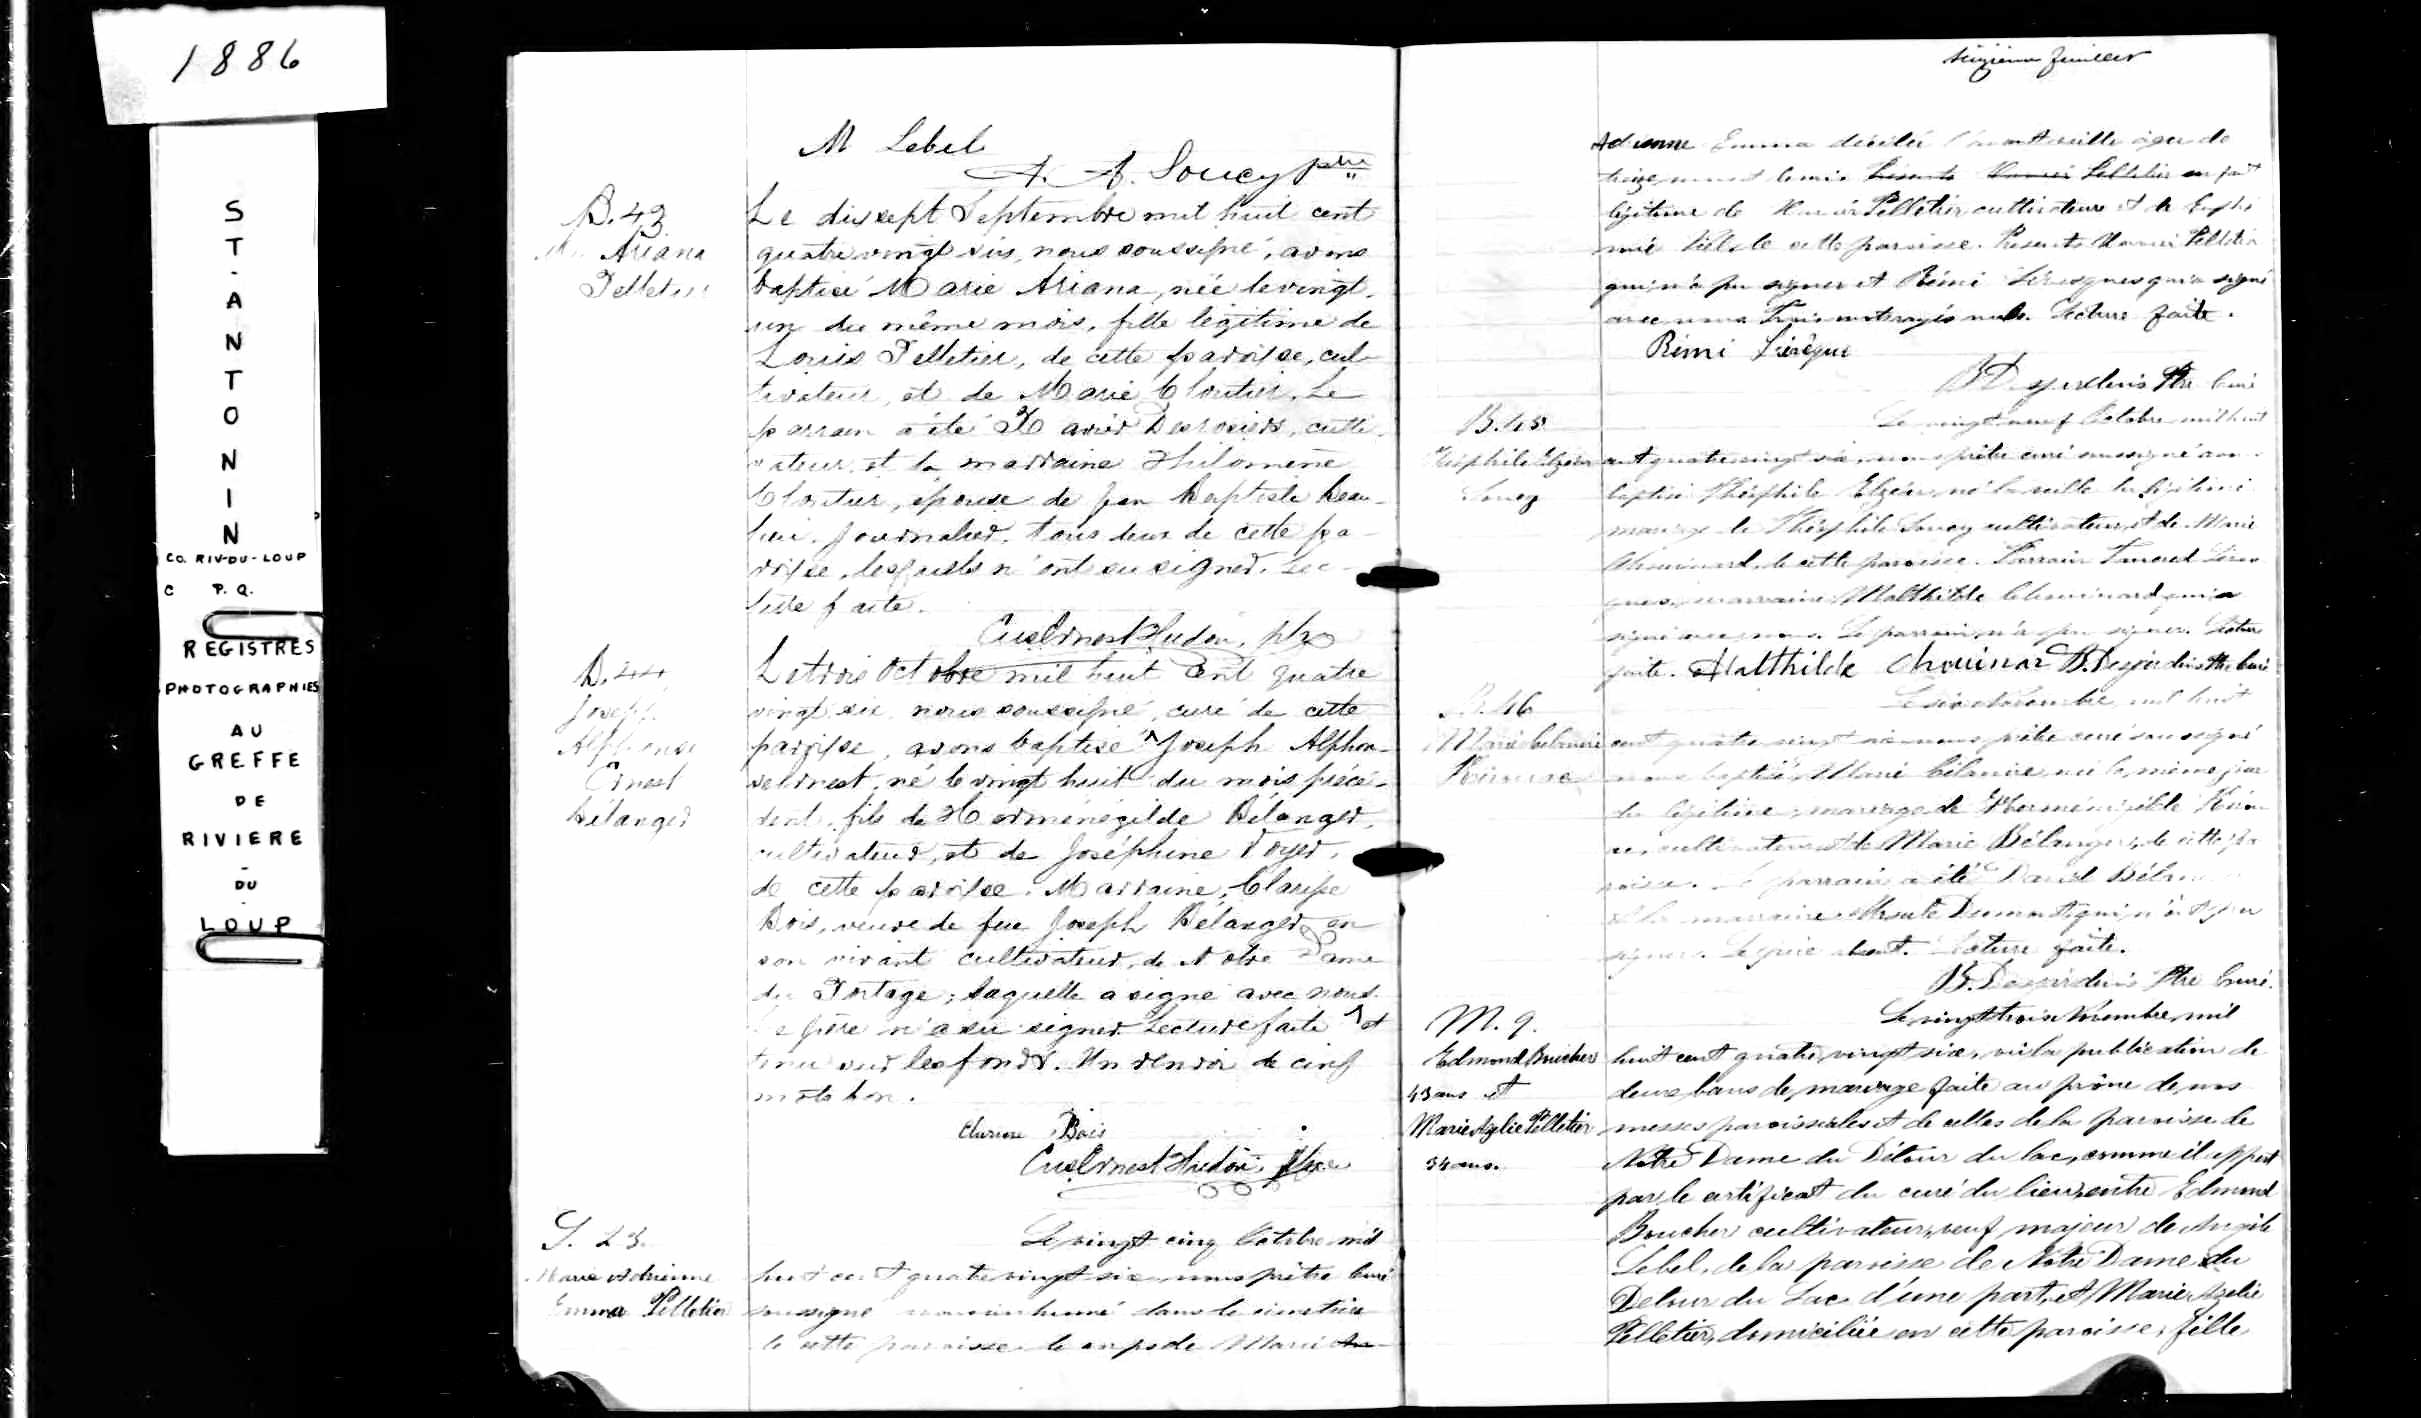 1886
S
T
-
A
N
T
O
N
I
N
CO. RIV-DU-LOUP
C P. Q.
REGISTRES
PHOTOGRAPHIES
AU
GREFFE
DE
RIVIERE
-
DU
-
LOUP
M Lebel
A. A. Soucy ptre
B. 43
M. Ariana
Pelletier
Le dix sept Septembre mil huit cent
quatre vingt six, nous soussigné, avons
baptisé Marie Ariana, née le vingt
un du même mois, fille légitime de
Louis Pelletier, de cette paroisse, cul-
tivateur, et de Marie Cloutier. Le
parrain a été Xavier Desrosiers, culti-
vateur, et la marraine Philomène
Cloutier, épouse de Jean Baptiste Beau-
lieu, journalier, tous deux de cette pa-
roisse, lesquels n'ont su signer. Lec-
ture faite.
Cus Ernest Hudon, ptre
B. 44
Joseph
Alphonse
Ernest
Bélanger
Le trois Octobre mil huit cent quatre
vingt six, nous soussigné, curé de cette
paroisse, avons baptisé Joseph Alphon-
se Ernest, né le vingt huit du mois précé-
dent, fils de Herménégilde Bélanger,
cultivateur, et de Joséphine Voyer,
de cette paroisse. Marraine, Clarisse
Bois, veuve de feu Joseph Bélanger, en
son vivant cultivateur, de Notre Dame
du Portage; laquelle a signé avec nous.
Le père n'a su signer. Lecture faite et
tenu sur les fonds. Un renvoi de cinq
mots bon.
Clarisse Bois
Cus Ernest Hudon, Ptre
S. 23.
Marie Adrienne
Emma Pelletier
Le vingt cinq Octobre mil
huit cent quatre vingt six nous prêtre curé
soussigné avons inhumé dans le cimetière
de cette paroisse le corps de Marie
Adrienne Emma décédée l'avant veille âgée de
treize mois et demie Pelletier enfant
légitime de Xavier Pelletier cultivateur et de Euphé
mie de cette paroisse. Présents Xavier Pelletier
qui n'a pu signer et Rémi Lévesque qui a signé
avec nous Trois mots rayés nuls. Lecture faite.
Rémi Lévèque
B Desjardins Ptre Curé
B. 45
Théophile Elzéar
Soucy
Le vingt neuf Octobre mil huit
cent quatre vingt six, nous prêtre curé soussigné avons
baptisé Théophile Elzéar, né la veille du légitime
mariage de Théophile Soucy cultivateur et de Marie
Chouinard, de cette paroisse. Parrain
marraine Malthilde Chouinard qui a
signé avec nous. Le parrain n'a pu signer. Lecture
faite. Malthilde Chouinar B. Desjardins Ptre Curé
B. 46
Marie Célanire
Le six Novembre mil huit
cent quatre vingt six nous prêtre curé soussigné
avons baptisé Marie Célanire née le même jour
du légitime mariage de
cultivateur et de Marie Bélanger, de cette pa
roisse. Le parrain a été David Bélanger
et la marraine Dumont qui n'ont pu
signer. Le père absent. Lecture faite.
B. Desjardins Ptre Curé.
M. 9.
Edmond Boucher
43 ans et
Marie Azélie Pelletier
34 ans.
Le vingt trois Novembre mil
huit cent quatre vingt six, vu la publication de
deux bans de mariage faite au prône de nos
messes paroissiales et de celles de la paroisse de
Notre Dame du Détour du lac, comme il appert
par le certificat du curé du lieu, entre Edmond
Boucher cultivateur, veuf majeur de Angèle
Lebel, de la paroisse de Notre Dame du
Detour du Lac d'une part, et Marie Azelie
Pelletier, domiciliée en cette paroisse, fille